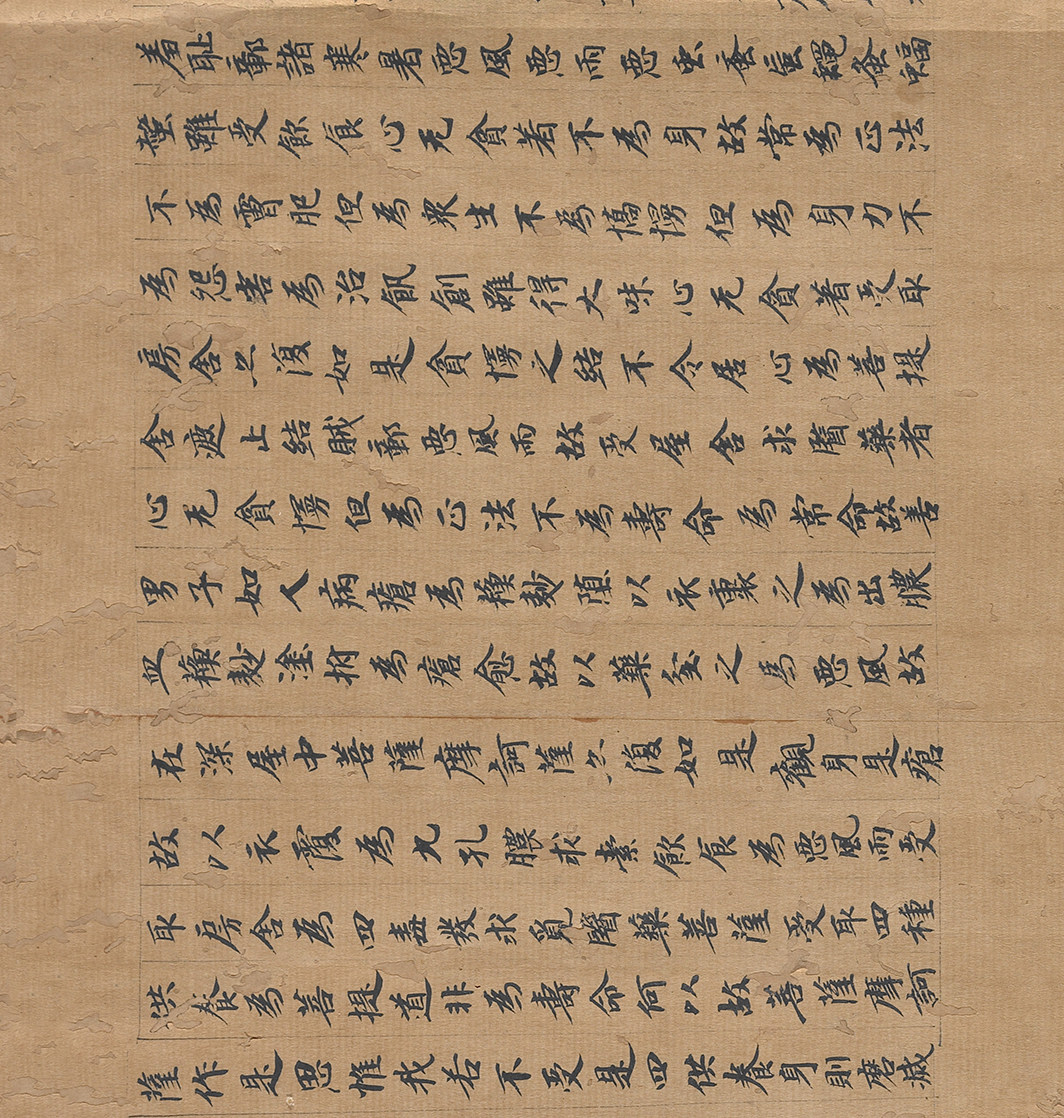 羞耻鄣諸寒暑惡風惡雨惡虫蚉䖟蠅蚤蝮
螫雖受飲食心无貪著不為身故常為正法
不為膚肥但為眾生不為憍慢但為身力不
為怨害為治飢創雖得大味心无貪著受取
房舍亦復如是貪慢之結不令居心為菩提
舍遮止結賊鄣惡風雨故受屋舍求醫藥者
心无貪慢但為正法不為壽命為常命故善
男子如人病瘡為麨以衣裹之為出膿
血麨塗拊為瘡愈故以藥坌之為惡風故
在深屋中菩薩摩訶薩亦復如是觀身是瘡
故以衣覆為九孔膿求索飲食為惡風雨受
取房舍為四毒發求覓醫藥菩薩受取四種
供養為菩提道非為壽命何以故菩薩摩訶
薩作是思惟我若不受是四供養身則磨滅